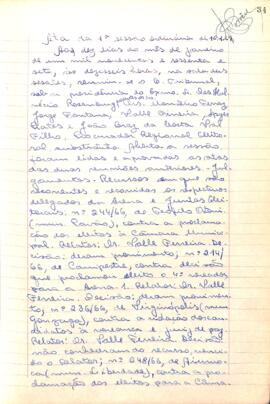 34
Ata da 1ª sessão ordinária de 10.1.67
Aos dez dias do mês de janeiro
de um mil novecentos e sessenta e
sete, às dezesseis horas, na sala das
sessões, reuniu-se o E. Tribunal,
sob a presidência do Exmo. Sr. Des.
presentes os Drs.
Jorge Fontana, Valle Ferreira,
e João Braz da Costa Val
Filho, Procurador Regional Eleito-
ral substituto. Aberta a sessão,
foram lidas e aprovadas as atas
das duas reuniões anteriores. Jul-
gamentos. Recursos em que são
recorrentes e recorridos os respectivos
delegados da Arena e Juntas Elei-
torais: nº 244/66, de Teófilo Otoni
(mun. Pavão), contra a proclama-
ção dos eleitos à Câmara Munici-
pal. Relator: Dr. Valle Ferreira. De-
cisão: deram provimento; nº 214/
66, de Campestre, contra decisão
que proclamou eleito o 4º vereador
para a Arena 1. Relator: Dr. Valle
Ferreira. Decisão: deram provimen-
to; nº 236/66, de Virginópolis (mun.
Gonzaga), contra a
didatos à vereança e juiz de paz.
Relator: Dr. Valle Ferreira. Decisão:
não conheceram do recurso, venci-
do o relator; nº 248/66, de
(mun. Liberdade), contra a pro-
clamação dos eleitos para a Câma-